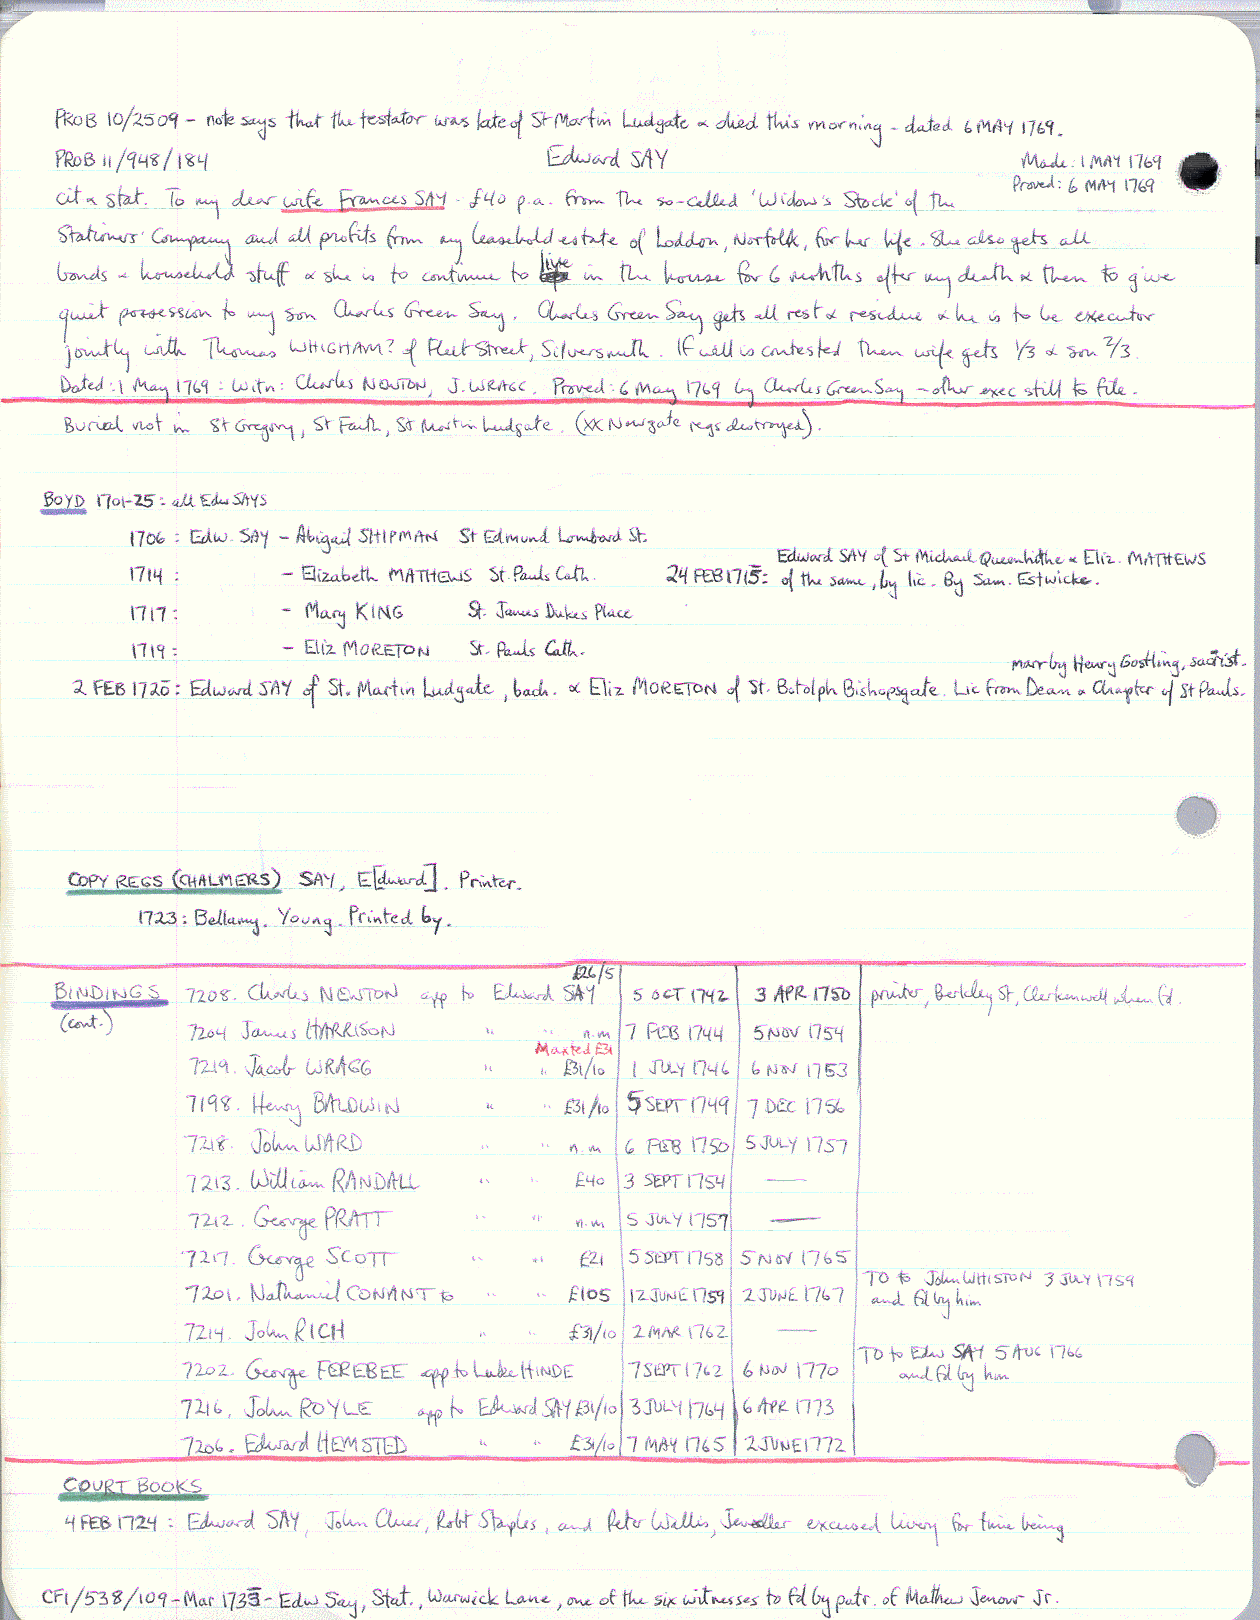 PROB 10/2509 – note says that the testator was late of St Martin Ludgate & died this morning – dated 6 MAY 1769.
PROB 11/948/184 Edward SAY Made: 1 MAY 1769
Proved: 6 MAY 1769
cit & stat. To my dear wife Frances SAY £40 p.a. from the so-called 'Widow's Stock' of the
Stationers' Company and all profits from my leasehold estate of Loddon, Norfolk, for her life. She also gets all
bonds & household stuff & she is to continue to live in the house for 6 months after my death & then to give
quiet possession to my son Charles Green Say. Charles Green Say gets all rest & residue & he is to be executor
jointly with Thomas WHIGHAM? of Fleet Street, Silversmith. If will is contested then wife gets 1/3 & son 2/3.
Dated: 1 May 1769: Witn: Charles NEWTON, J. WRAGG. Proved: 6 May 1769 by Charles Green Say – other exec still to file.
Burial not in St Gregory, St Faith, St Martin Ludgate. (XX Newgate regs destroyed).
BOYD 1701-25: all Edw SAYS
1706: Edw. SAY – Abigail SHIPMAN St Edmund Lombard St.
Edward SAY of St Michael Queenhithe & Eliz. MATHEWS
1714: – Elizabeth MATHEWS St. Pauls Cath. 24 FEB 1715: of the same, by lic. By Sam. Estwicke.
1717: – Mary KING St. James Dukes Place
1719: – Eliz MORETON St. Pauls Cath.
marr by Henry Gostling, sacrist.
2 FEB 1720: Edward SAY of St. Martin Ludgate, bach. & Eliz MORETON of St. Botolph Bishopsgate. Lic from Dean & Chapter of St Pauls.
COPY REGS (CHALMERS) SAY, E[dward]. Printer.
1723: Bellamy. Young. Printed by.
£26/5
BINDINGS 7208. Charles NEWTON app to Edward SAY 5 OCT 1742 3 APR 1750 printer, Berkley St, Clerkenwell when f'd.
(cont.) 7204 James HARRISON " " n.m 7 FEB 1744 5 NOV 1754
Maxted £31
7219. Jacob WRAGG " " £31/10 1 JULY 1746 6 NOV 1753
7198. Henry BALDWIN " " £31/10 5 SEPT 1749 7 DEC 1756
7218. John WARD " " n.m 6 FEB 1750 5 JULY 1757
7213. William RANDALL " " £40 3 SEPT 1754 —
7212. George PRATT " " n.m 5 JULY 1757 —
7217. George SCOTT " " £21 5 SEPT 1758 5 NOV 1765
TO to John WHISTON 3 JULY 1759
7201. Nathaniel CONANT to " " £105 12 JUNE 1759 2 JUNE 1767 and f'd by him
7214. John RICH " " £31/10 2 MAR 1762 —
TO to Edw SAY 5 AUG 1766
7202. George FEREBEE app to Luke HINDE 7 SEPT 1762 6 NOV 1770 and f'd by him
7216. John ROYLE app to Edward SAY £31/10 3 JULY 1764 6 APR 1773
7206. Edward HEMSTED " " £31/10 7 MAY 1765 2 JUNE 1772
COURT BOOKS
4 FEB 1724: Edward SAY, John Cluer, Robt Staples, and Peter Wallis, Jeweller excused livery for time being
CF1/538/109 – Mar 1733 – Edw Say, Stat., Warwick Lane, one of the six witnesses to f'd by patr. of Mathew Jenour Jr.